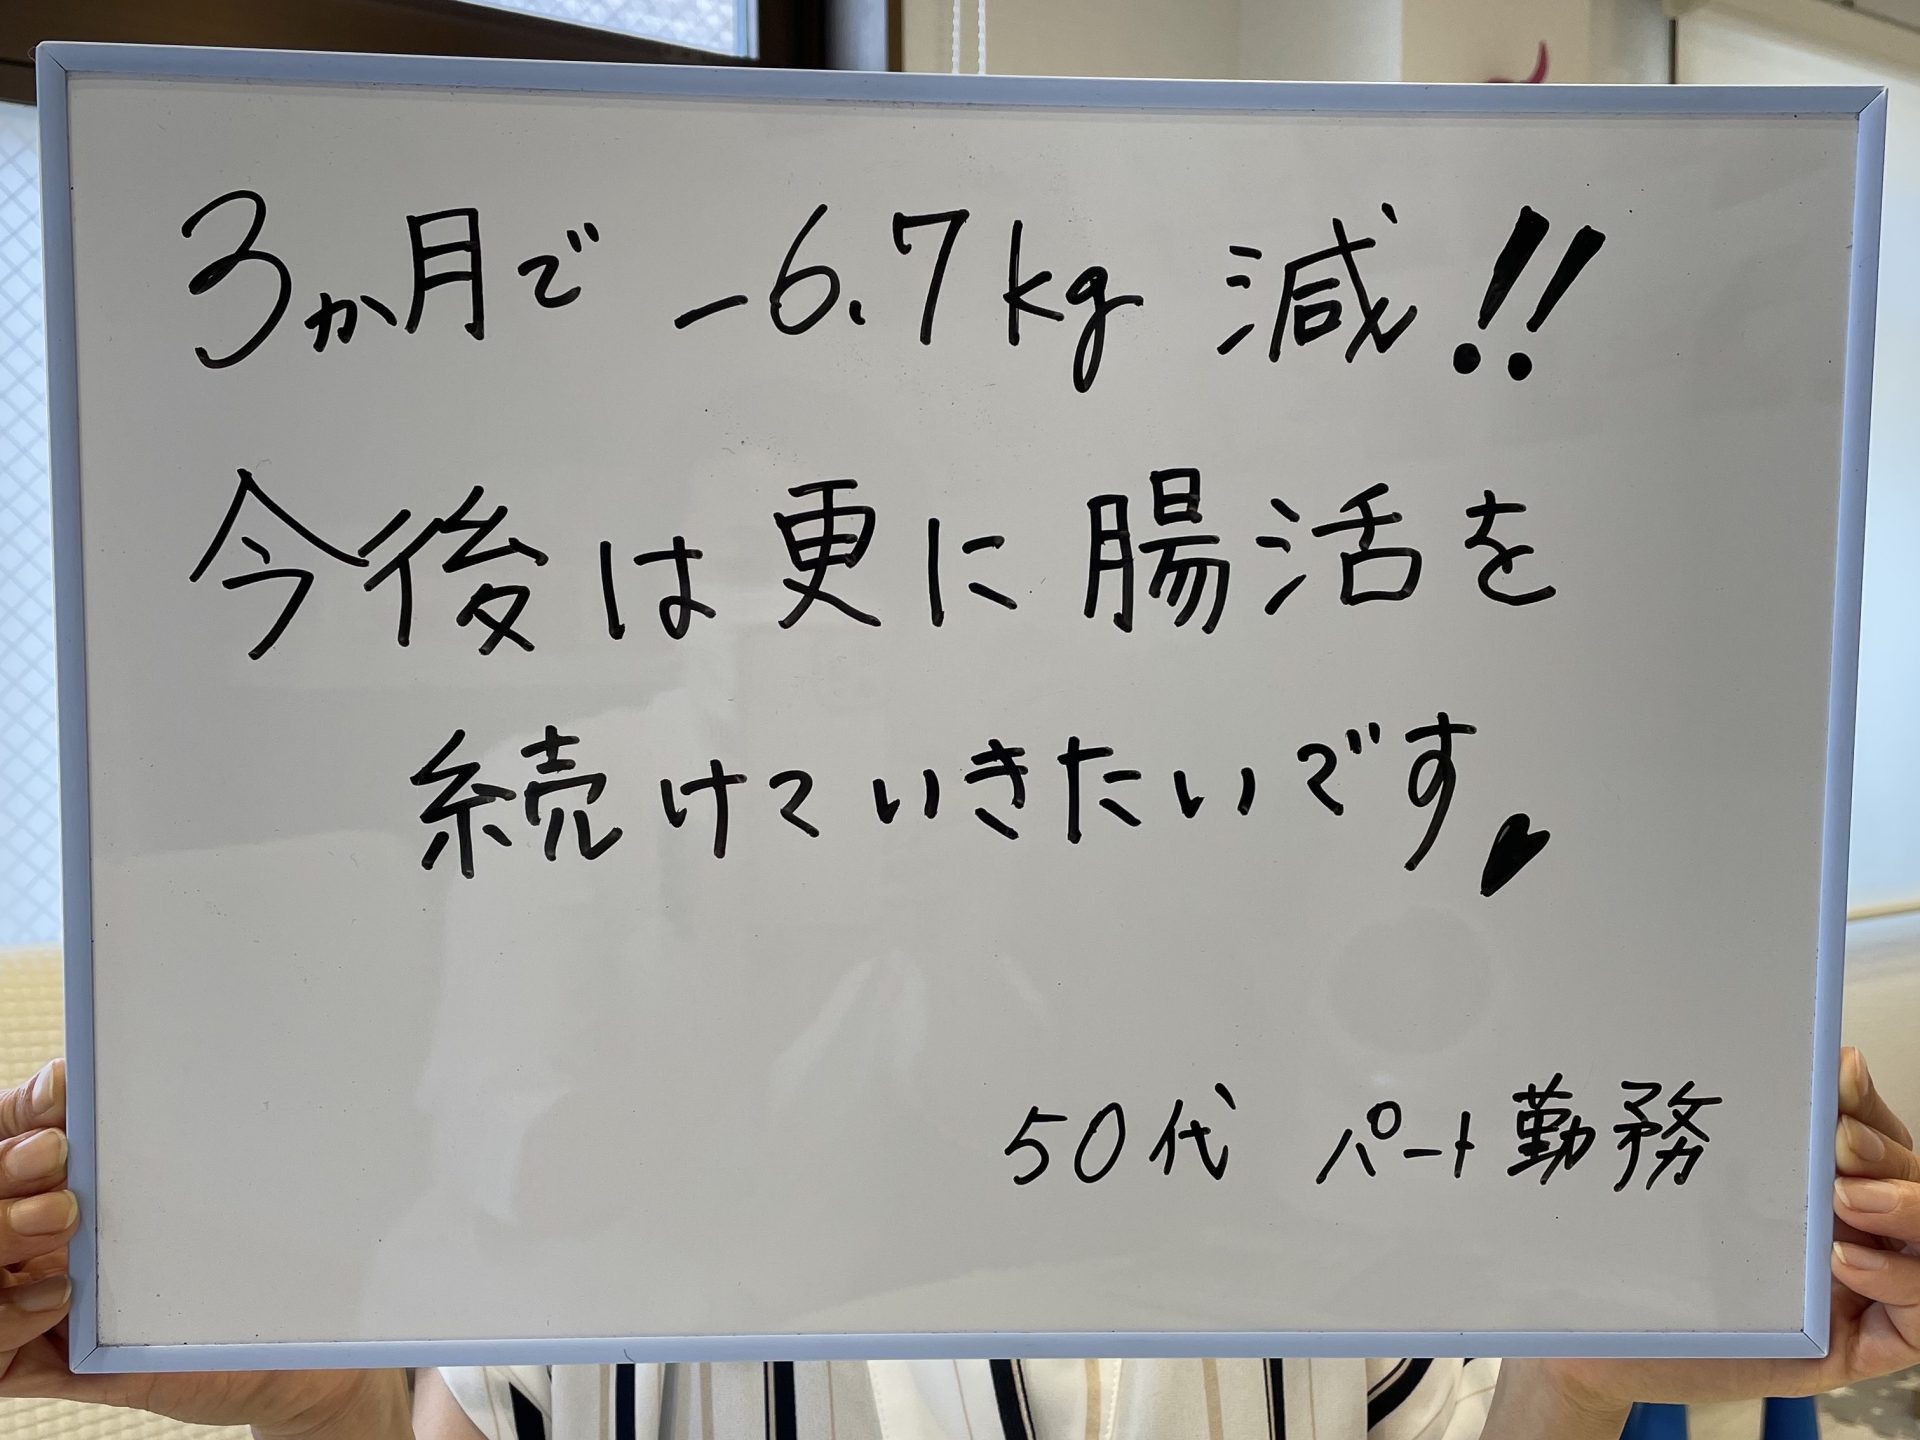 3か月で -6.7kg 減!!
今後は更に腸活を
続けていきたいです♥
50代 パート勤務